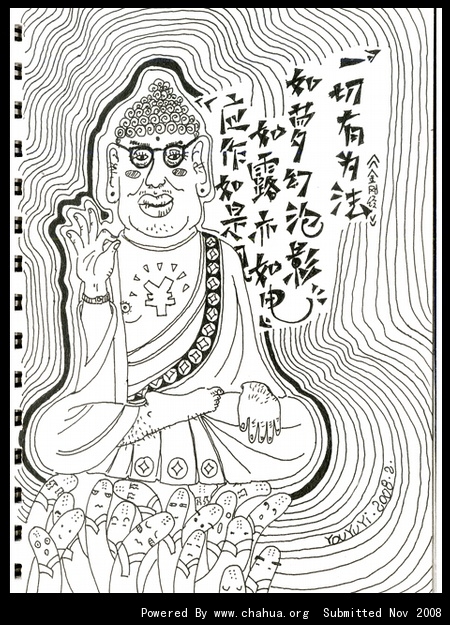 一切有为法
《金刚经》
如梦幻泡影
如露亦如电
应作如是观
¥
YouYiYi·2008.2.
Powered By www.chahua.org Submitted Nov 2008